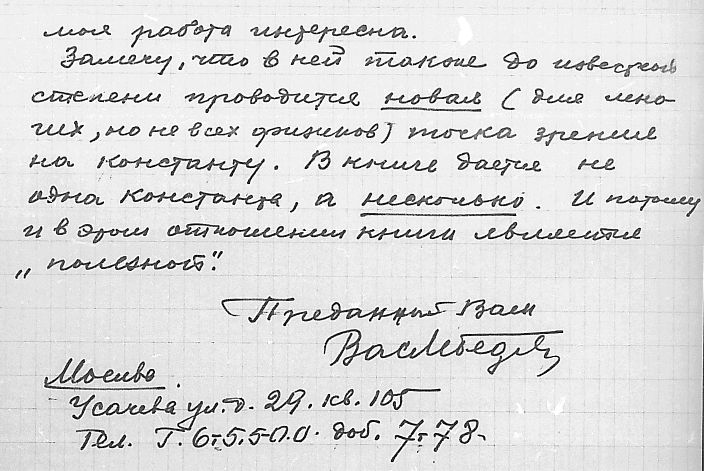 моя работа интересна.
Замечу, что в ней также до известной
степени проводится новая (для мно-
гих, но не всех физиков) точка зрения
на константу. В книге дается не
одна константа, а несколько. И потому
и в этом отношении книга является
„полезной".
Преданный Вам
Москва.
Усачева ул. д. 29. кв. 105
Тел. Г. 6-55-00. доб. 7-78-